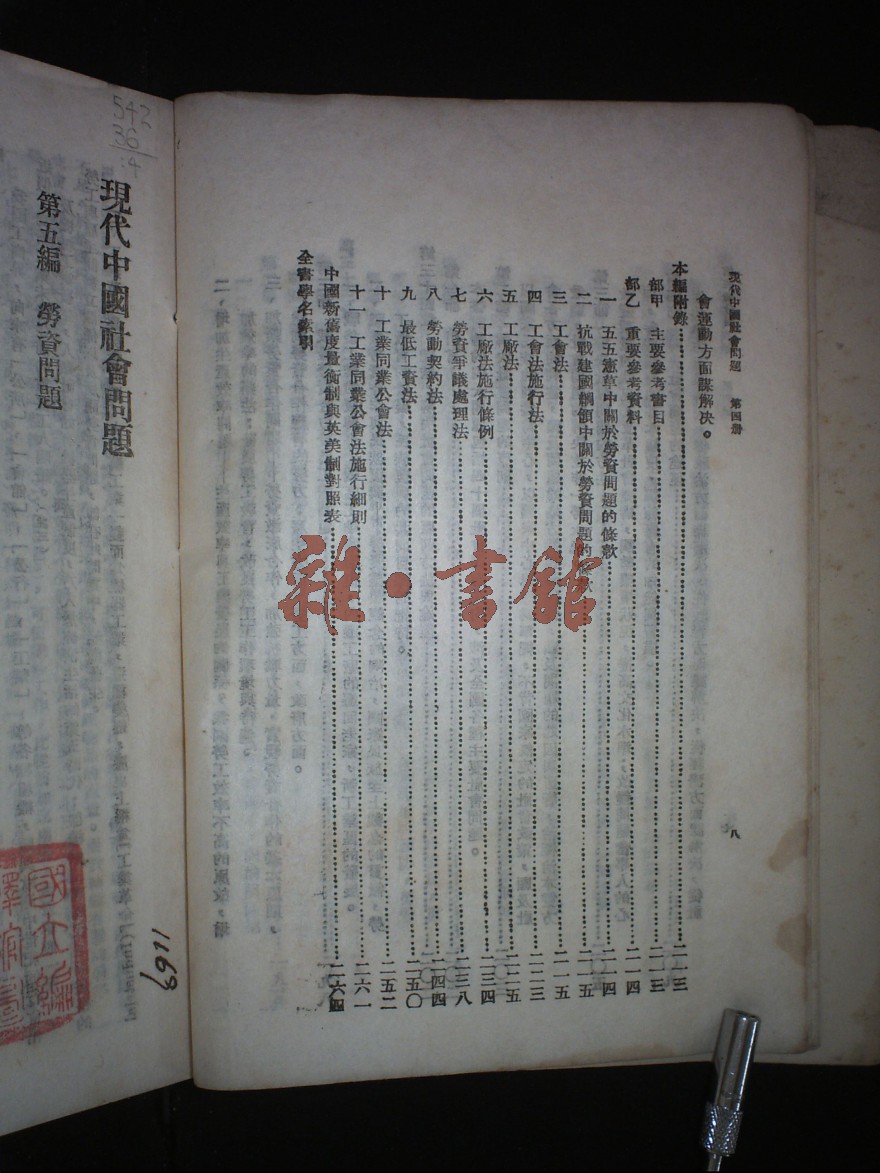 現代中國社會問題　第四册
八
會運動方面謀解决。
本編附錄……二一三
部甲　主要參考書目……二一三
部乙　重要參考資料……二一四
一　五五憲草中關於勞資問題的條款……二一四
二　抗戰建國綱領中關於勞資問題的條款……二一五
三　工會法……二一五
四　工會法施行法……二二三
五　工廠法……二二五
六　工廠法施行條例……二三四
七　勞資爭議處理法……二三八
八　勞動契約法……二四四
九　最低工資法……二五〇
十　工業同業公會法……二五二
十一　工業同業公會法施行細則……二六一
中國新舊度量衡制與英美制對照表……二六四
全書學名索引
雜·書館
542
36
:4
現代中國社會問題
第五編　勞資問題
國立編
譯館